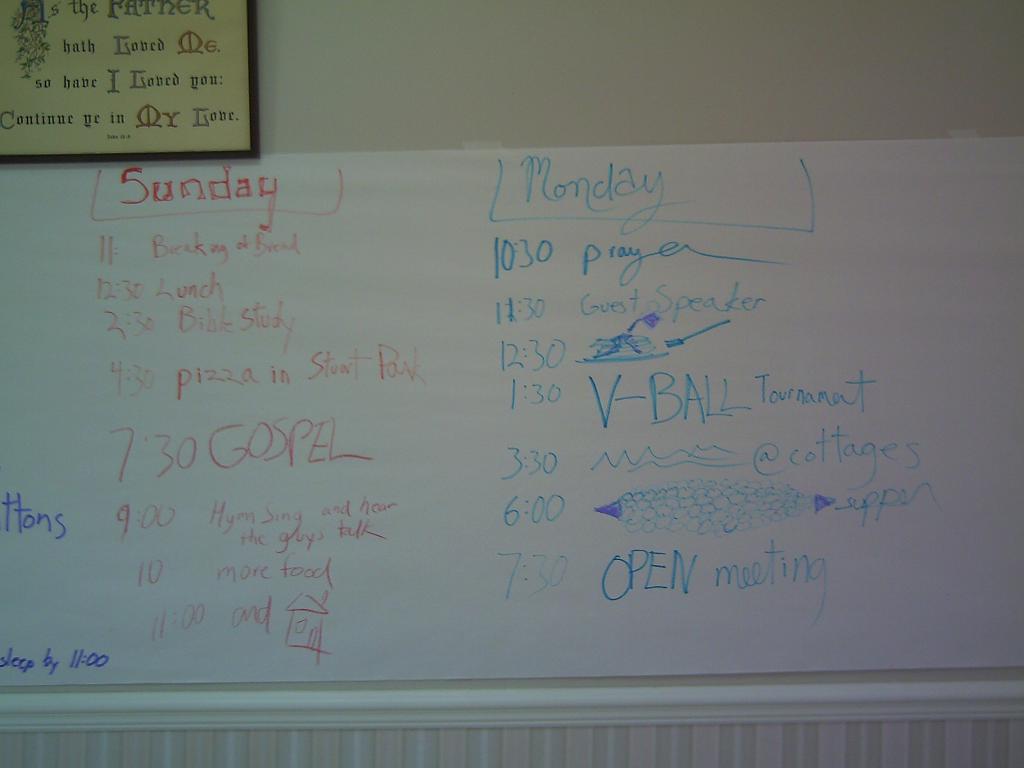 As the FATHER
hath Loved Me.
so have I Loved you:
Continue ye in My Love.
Sunday
11: Breaking of Bread
12:30 Lunch
2:30 Bible Study
4:30 pizza in Stuart Park
7:30 GOSPEL
9:00 Hymn Sing and hear
the guys talk
10 more food
11:00 and
Monday
10:30 prayer
11:30 Guest Speaker
12:30
1:30 V-BALL Tournament
3:30 @cottages
6:00 supper
7:30 OPEN meeting
ttons
sleep by 11:00